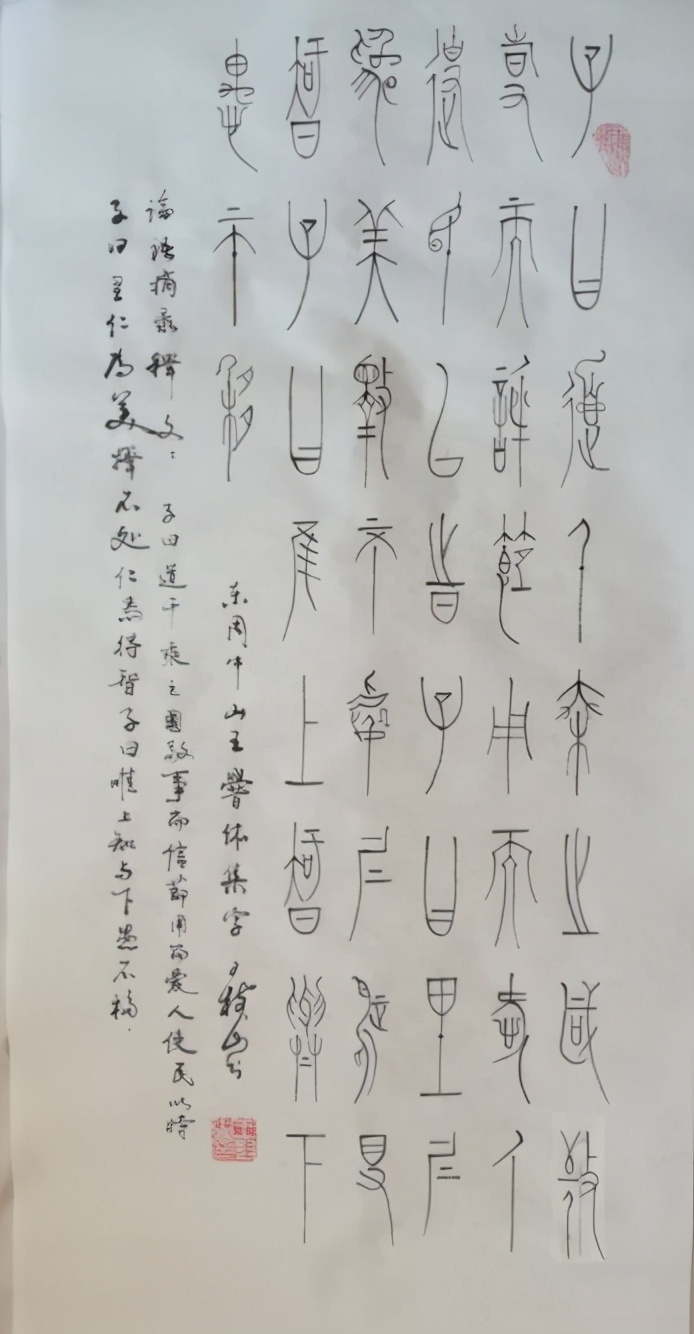 子曰道千乘之國敬
事而信節用而愛人
使民以時子曰里仁
為美擇不處仁焉得
智子曰唯上智與下
愚不移
东周中山王譽体集字 山书
論語摘录釋文：子曰道千乘之國敬事而信節用而爱人使民以時
子曰里仁为美擇不处仁焉得智子曰唯上知与下愚不移.